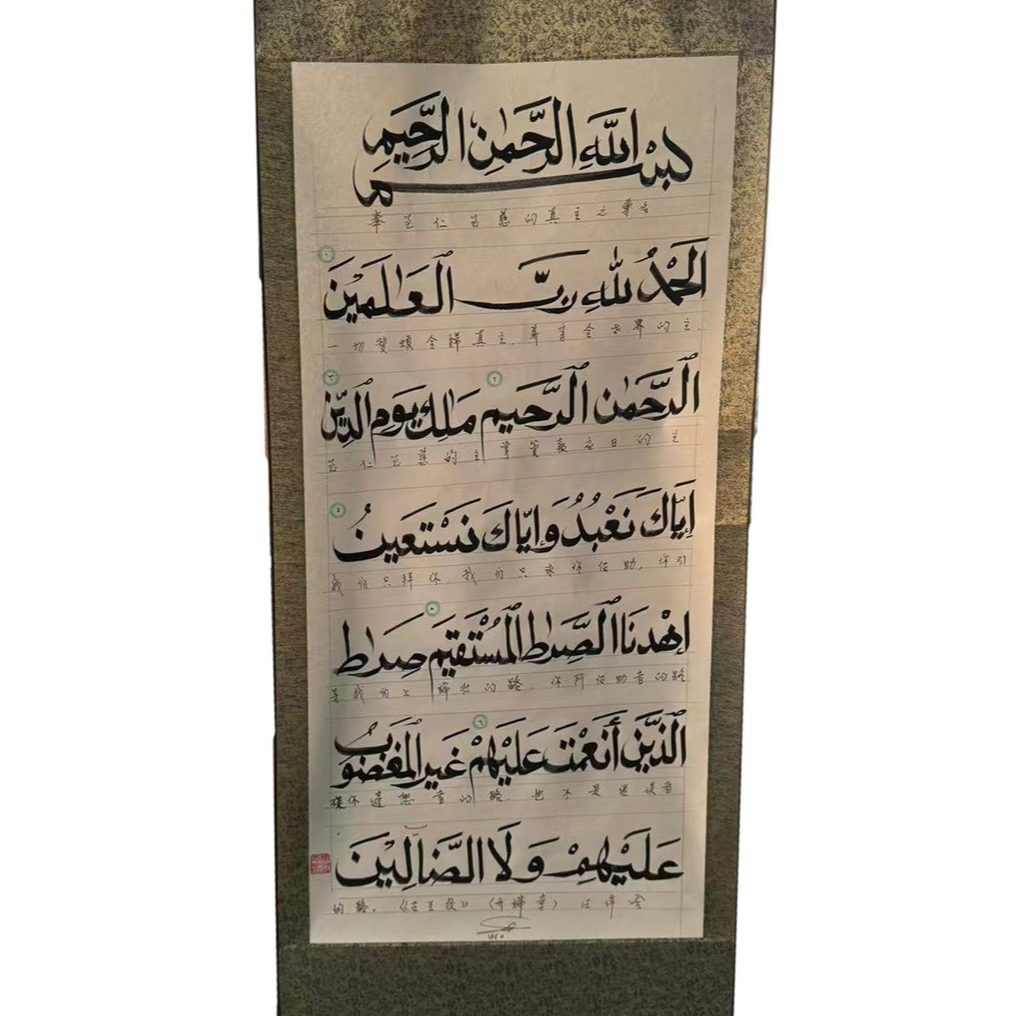 بِسْمِ اللَّهِ الرَّحْمَٰنِ الرَّحِيمِ
奉至仁至慈的真主之尊名
الْحَمْدُ لِلَّهِ رَبِّ الْعَالَمِينَ ١
一切赞颂全归真主 养育全世界的主
الرَّحْمَٰنِ الرَّحِيمِ ٢ مَٰلِكِ يَوْمِ الدِّينِ ٣
至仁至慈的主 掌管报应日的主
إِيَّاكَ نَعْبُدُ وَإِيَّاكَ نَسْتَعِينُ ٤
我们只拜你 我们只求你佑助, 你引
اهْدِنَا الصِّرَٰطَ الْمُسْتَقِيمَ ٥ صِرَٰطَ
导我们上 的路 你所佑助者的路
الَّذِينَ أَنْعَمْتَ عَلَيْهِمْ ٦ غَيْرِ الْمَغْضُوبِ
谴怒者的路 也不是迷误者
عَلَيْهِمْ وَلَا الضَّالِّينَ
的路. 《古兰经》